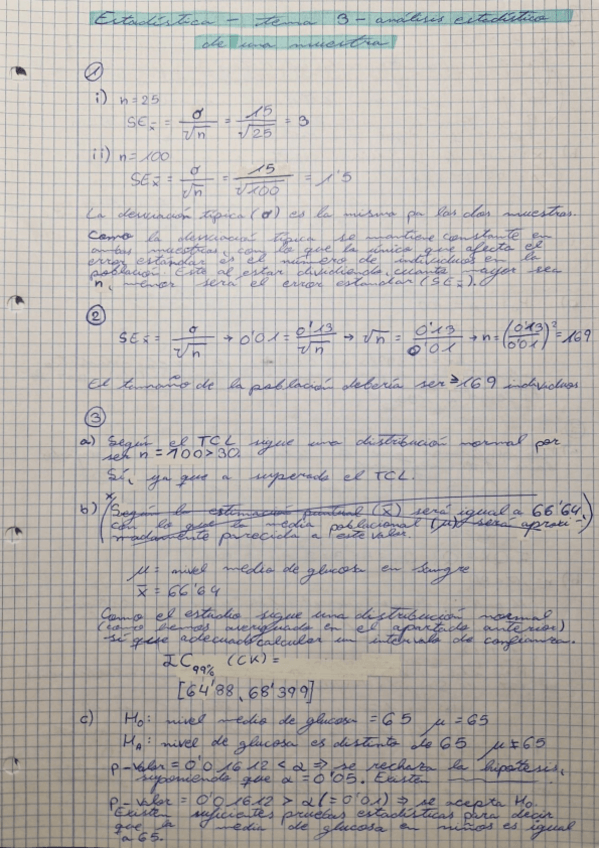 Estadística - tema 3 - análisis estadístico
de una muestra
1
i) n = 25
SE x̄ = σ/√n = 15/√25 = 3
ii) n = 100
SE x̄ = σ/√n = 15/√100 = 1'5
La desviación típica (σ) es la misma pa las dos muestras.
Como la desviación típica se mantiene constante en
ambas muestras, con lo que lo único que afecta el
error estándar es el número de individuos en la
población. Este al estar dividiendo, cuanto mayor sea
n, menor será el error estandar (SE x̄).
2
SE x̄ = σ/√n → 0'01 = 0'13/√n → √n = 0'13/0'01 → n = (0'13/0'01)² = 169
El tamaño de la población debería ser ≥ 169 individuos
3
a) Según el TCL sigue una distribución normal por
ser n = 100 > 30.
Sí, ya que a superado el TCL.
b) (Según la estimación puntual (x̄) será igual a 66'64,
con lo que la media poblacional (μ) será aproxi-
madamente parecida a este valor)
μ = nivel medio de glucosa en sangre
x̄ = 66'64
Como el estadio sigue una distribución normal
(como hemos averiguado en el apartado anterior)
sí que adecuado calcular un intervalo de confianza.
IC 99% (CK) =
[64'88, 68'399]
c) H₀: nivel medio de glucosa = 65 μ = 65
H_A: nivel de glucosa es distinto de 65 μ ≠ 65
p-valor = 0'01612 < α ⇒ se rechaza la hipótesis,
suponiendo que α = 0'05. Existen
p-valor = 0'01612 > α (= 0'01) ⇒ se acepta H₀.
Existen suficientes pruebas estadísticas para decir
que la media de glucosa en niños es igual
a 65.